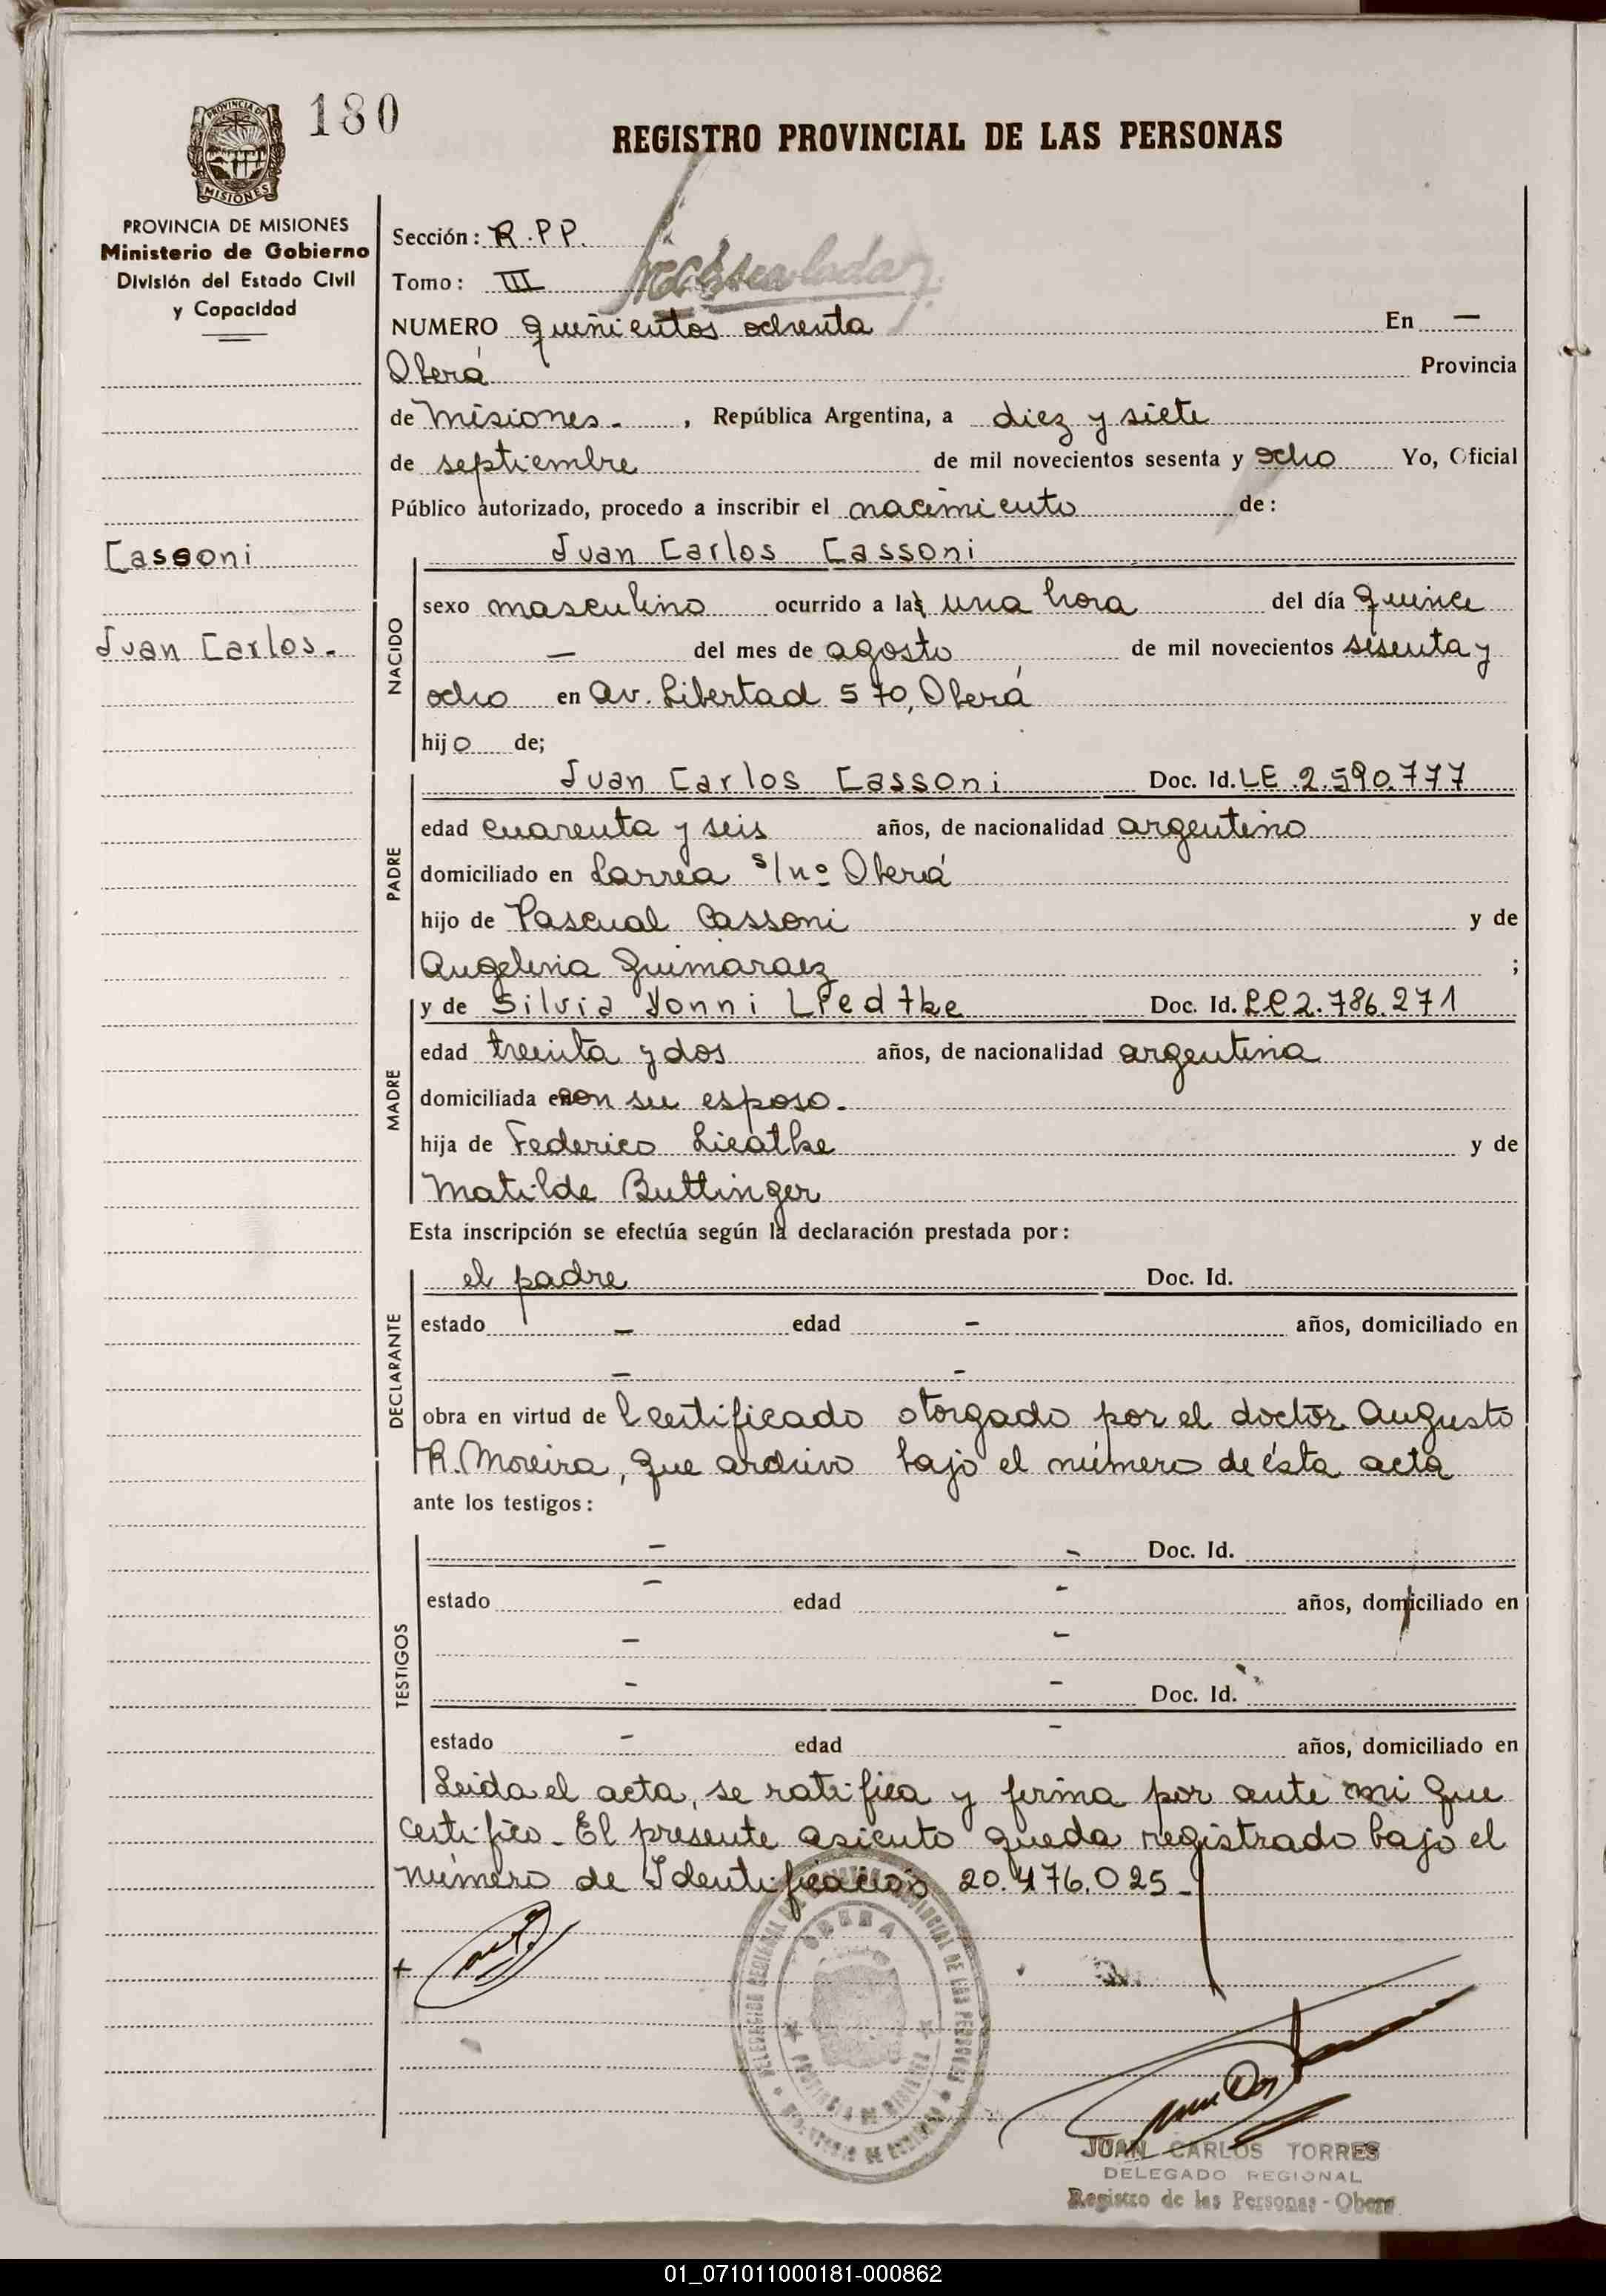 180
REGISTRO PROVINCIAL DE LAS PERSONAS
PROVINCIA DE MISIONES
MISIONES
PROVINCIA DE MISIONES
Ministerio de Gobierno
División del Estado Civil
y Capacidad
Cassoni
Juan Carlos.-
Sección: R.PP.
Tomo: III
NUMERO quinientos ochenta En —
Oberá Provincia
de Misiones.- , República Argentina, a diez y siete
de septiembre de mil novecientos sesenta y ocho Yo, Oficial
Público autorizado, procedo a inscribir el nacimiento de:
Juan Carlos Cassoni
NACIDO
sexo masculino ocurrido a las una hora del día quince
— del mes de agosto de mil novecientos sesenta y
ocho en Av. Libertad 570, Oberá
hijo de;
PADRE
Juan Carlos Cassoni Doc. Id. LE.2.590.777
edad cuarenta y seis años, de nacionalidad argentino
domiciliado en Larrea s/nº Oberá
hijo de Pascual Cassoni y de
Angelina Guimaraez ;
MADRE
y de Silvia Yonni Liedtke Doc. Id. LC 2.786.271
edad treinta y dos años, de nacionalidad argentina
domiciliada con su esposo.-
hija de Federico Lieatke y de
Matilde Buttinger
Esta inscripción se efectúa según la declaración prestada por:
DECLARANTE
el padre Doc. Id.
estado — edad - años, domiciliado en
— -
obra en virtud de l certificado otorgado por el doctor Augusto
R. Moreira, que archivo bajo el número de ésta acta
ante los testigos:
TESTIGOS
— - Doc. Id.
estado — edad - años, domiciliado en
— -
- - Doc. Id.
estado - edad - años, domiciliado en
Leida el acta, se ratifica y firma por ante mi que
certifico.- El presente asiento queda registrado bajo el
número de Identificación 20.476.025.-
DELEGACION REGIONAL PROVINCIAL DE LAS PERSONAS
OBERA
PROVINCIA DE MISIONES
JUAN CARLOS TORRES
DELEGADO REGIONAL
Registro de las Personas - Obera
01_071011000181-000862